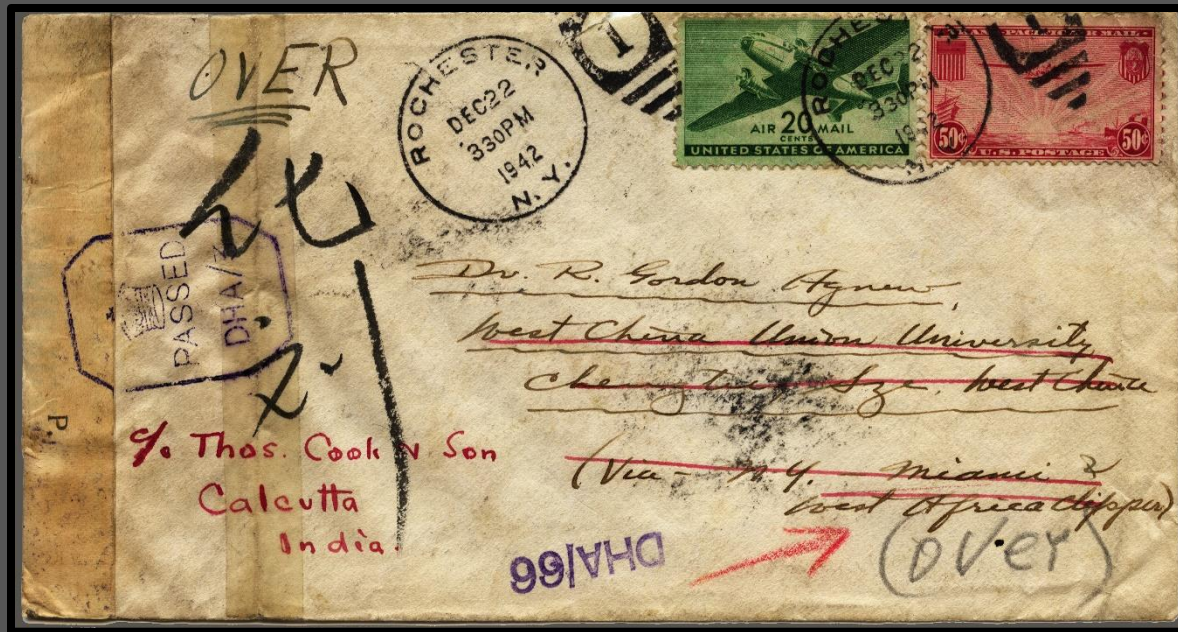 OVER
ROCHESTER
DEC 22
330PM
1942
N. Y.
1
AIR 20 MAIL
CENTS
UNITED STATES OF AMERICA
ROCHE
DEC 22
330PM
1942
TRANS-PACIFIC AIR MAIL
50¢ 50¢
U.S. POSTAGE
PASSED
DHA/7
P.
Dr. R. Gordon Agnew,
West China Union University
Chengtu, Sze. West China
(Via - N.Y. Miami &
West Africa Clipper)
c/o Thos. Cook & Son
Calcutta
India.
DHA/66
(over)